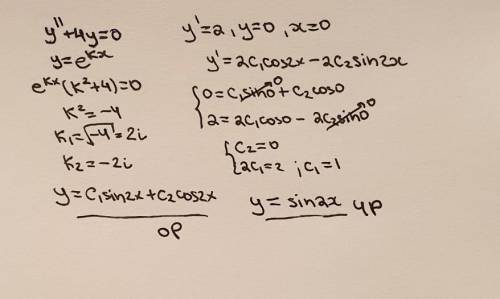 y''+4y=0
y=e^{kx}
e^{kx}(k²+4)=0
k²=-4
k₁=√-4=2i
k₂=-2i
y=C₁sin2x+C₂cos2x
ОР
y'=2, y=0, x=0
y'=2C₁cos2x-2C₂sin2x
{0=C₁sin0→0+C₂cos0
2=2C₁cos0-2C₂sin0→0
{C₂=0
2C₁=2; C₁=1
y=sin2x ЧР